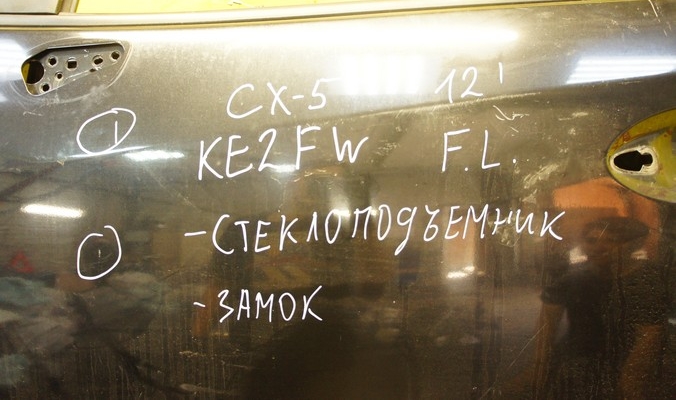 CX-5 12'
KE2FW F.L.
-СТЕКЛОПОДЪЕМНИК
-ЗАМОК